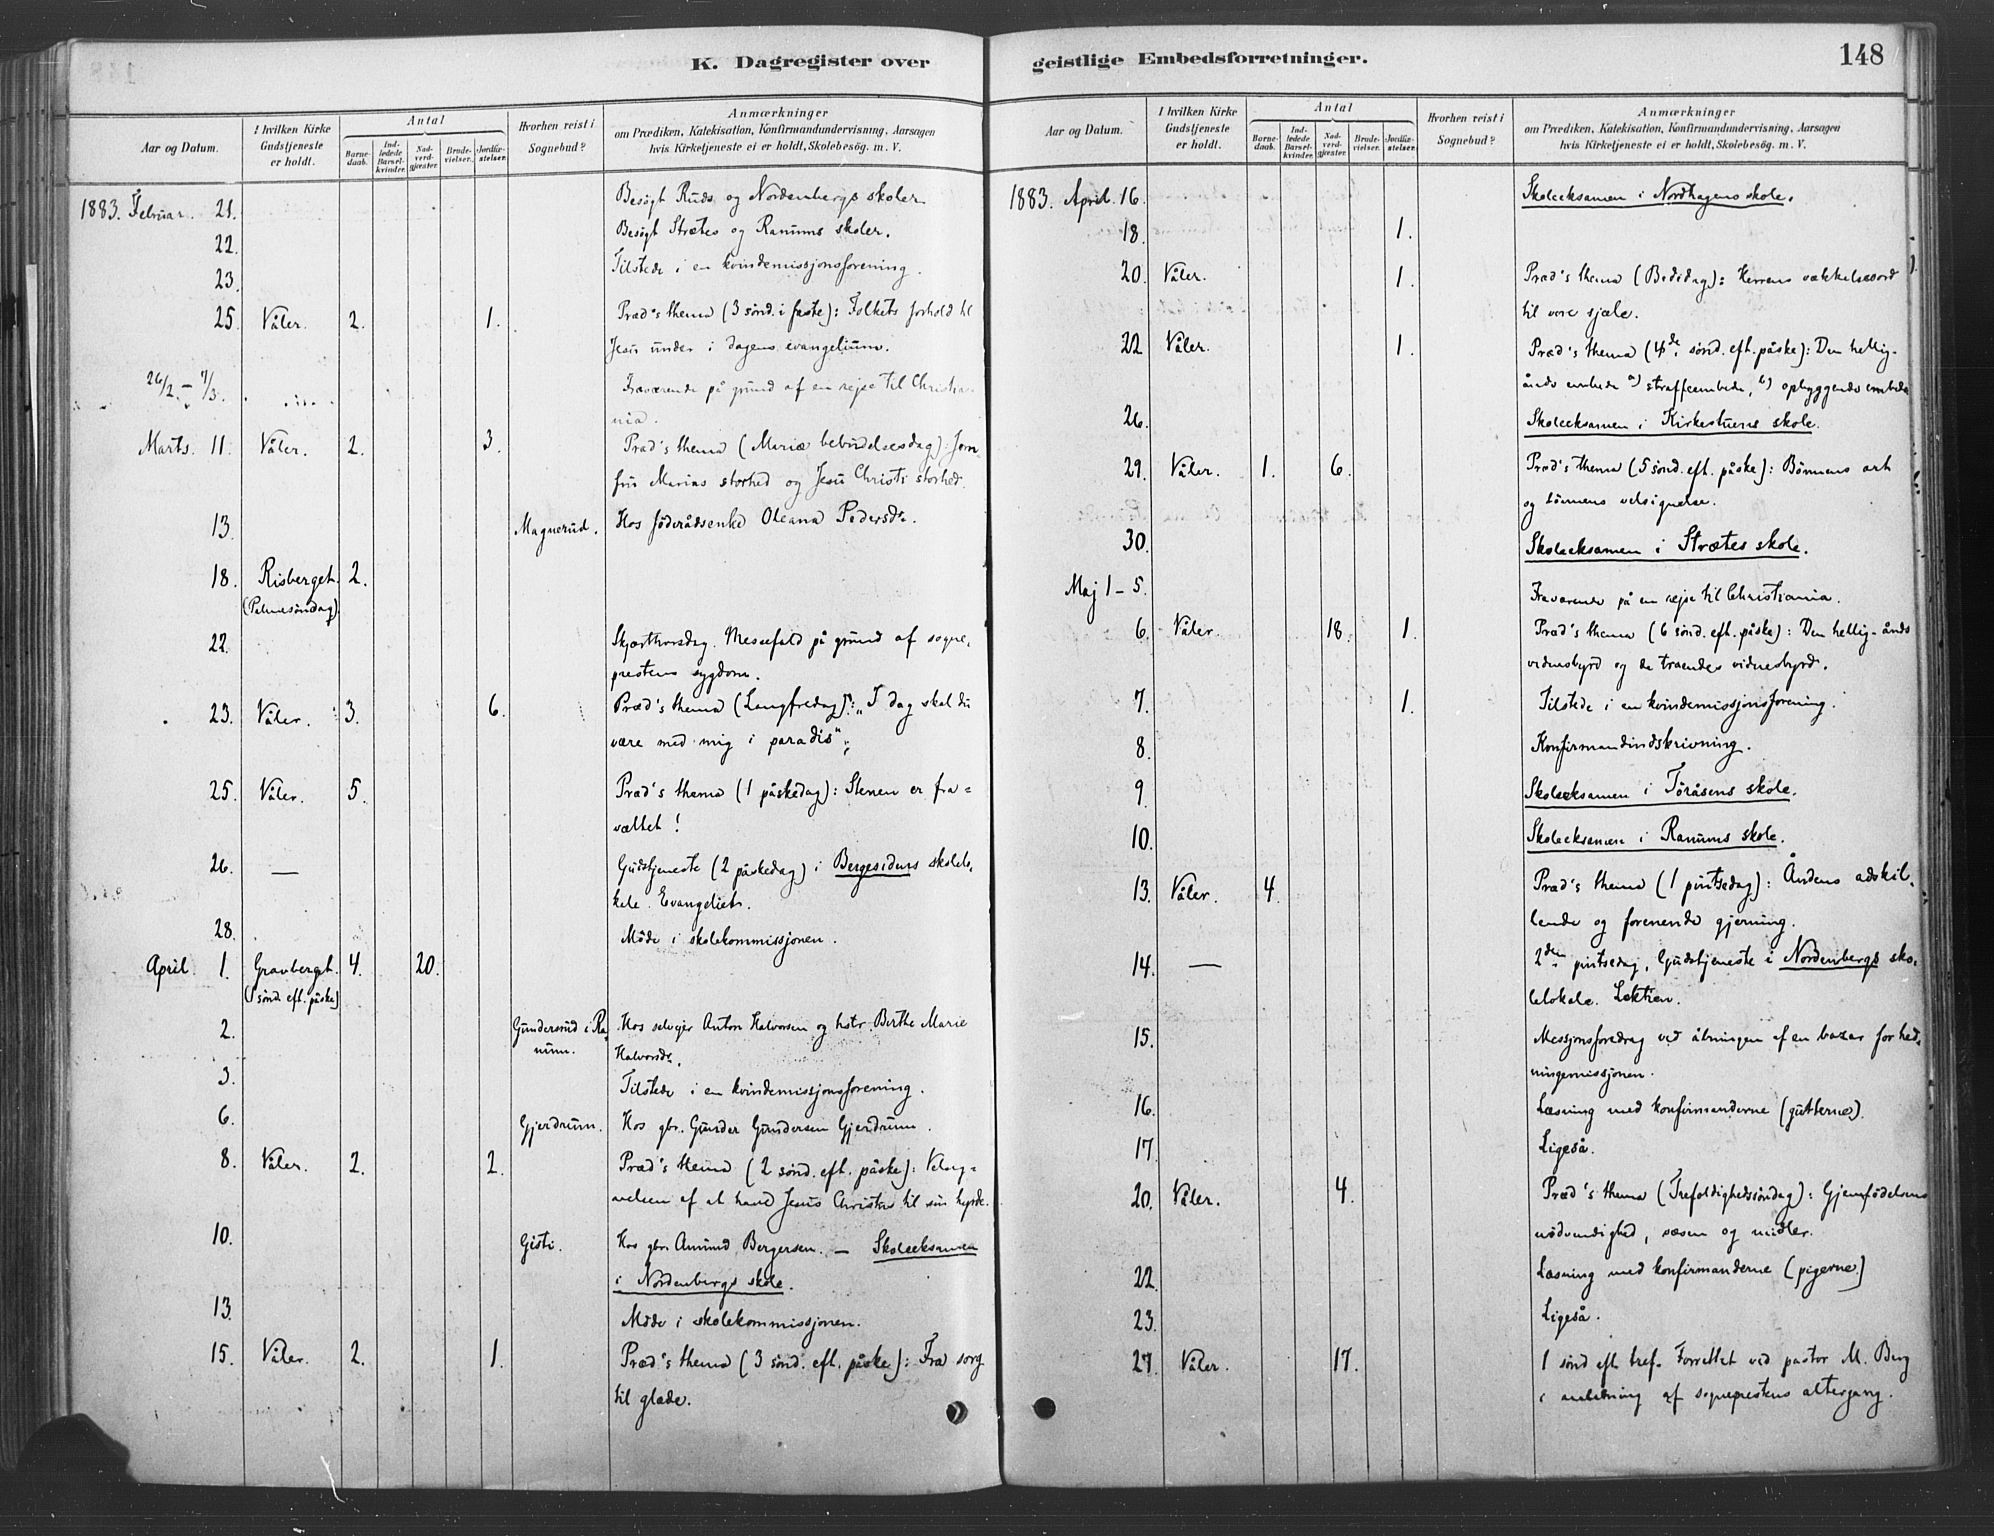 K. Dagregister over
Aar og Datum.
I hvilken Kirke Gudstjeneste er holdt.
Antal
Barnedaab.
Indledede Barselkvinder.
Nadverdgjæster.
Brudevielser.
Jordfæstelser.
Hvorhen reist i Sognebud?
Anmærkninger
om Prædiken, Katekisation, Konfirmandundervisning, Aarsagen
hvis Kirketjeneste ei er holdt, Skolebesøg. m. V.
1883. Februar. 21. Besøgt Ruds og Nordenbergs skoler
22. Besøgt Strætes og Ranums skoler.
23. Tilstede i en kvindemissjonsforening.
25. Våler. 2. 1. Præd's thema (3 sønd. i faste): Folkets forhold til
Jesu under i dagens evangelium.
26/2. – 7/3. Fraværende på grund af en rejse til Christia-
nia.
Marts. 11. Våler. 2. 3. Præd's thema (Mariæ bebudelsesdag): Jom-
fru Marias storhed og Jesu Christi storhed.
13. Magnerud. Hos föderådsenke Oleana Pedersdr.
18. Risberget. 2.
(Palmesöndag)
22. Skjærthorsdag. Messefald på grund af sogne-
prestens sygdom.
23. Våler. 3. 6. Præd's thema (Langfredag): „I dag skal du
være med mig i paradis“;
25. Våler. 5. Præd's thema (1 påskedag): Stenen er fra-
væltet!
26. — Gudstjeneste (2 påskedag) i Bergesidens skolelo-
kale. Evangeliet.
28. Möde i skolekommissjonen.
April. 1. Gravberget. 4. 20.
(1 sönd. eft. påske)
2. Gunderud i Ra- Hos selvejer Anton Halvorsen og hstr. Berthe Marie
num. Halvorsdr.
3. Tilstede i en kvindemissjonsforening.
6. Gjerdrum. Hos gbr. Gunder Gundersen Gjerdrum.
8. Våler. 2. 2. Præd's thema (2 sønd. eft. påske):
af at have Jesus Christus til sin hyrde.
10. Gisti. Hos gbr. Amund Bergersen. — Skoleeksamen
i Nordenbergs skole.
13. Möde i skolekommissjonen.
15. Våler. 2. 1. Præd's thema (3 sønd. eft. påske): Fra sorg
til glæde.
geistlige Embedsforretninger.
148
Aar og Datum.
I hvilken Kirke Gudstjeneste er holdt.
Antal
Barnedaab.
Indledede Barselkvinder.
Nadverdgjæster.
Brudevielser.
Jordfæstelser.
Hvorhen reist i Sognebud?
Anmærkninger
om Prædiken, Katekisation, Konfirmandundervisning, Aarsagen
hvis Kirketjeneste ei er holdt, Skolebesøg. m. V.
1883. April. 16. Skoleeksamen i Nordhagens skole.
18. 1.
20. Våler. 1. Præd's thema (Bededag): Herrens vækkelsesord
til vore sjæle.
22 Våler. 1. Præd's thema (4de sønd. eft. påske): Den hellig-
ånds embede a) straffeembede, b) opbyggende embede
26. Skoleeksamen i Kirkestuens skole.
29. Våler. 1. 6. Præd's thema (5 sønd. eft. påske): Bønnens art
og bönnens velsignelse.
30. Skoleeksamen i Strætes skole.
Maj 1 – 5. Fraværende på en rejse til Christiania.
6. Våler. 18. 1. Præd's thema (6 sønd. eft. påske): Den hellig-ånds
vidnesbyrd og de troendes vidnesbyrd.
7. 1. Tilstede i en kvindemissjonsforening.
8. Konfirmandindskrivning.
9. Skoleeksamen i Töråsens skole.
10. Skoleeksamen i Ranums skole.
13. Våler. 4. Præd's thema (1 pintsedag): Åndens adskil-
lende og forenende gjerning.
14. — 2den pintsedag. Gudstjeneste i Nordenbergs sko-
lelokale. Lektien.
15. Messjonsforedrag ved åbningen af en bazar for hed-
ningemissjonen.
16. Læsning med konfirmanderne (gutterne).
17. Ligeså.
20. Våler. 4. Præd's thema (Trefoldighedssöndag): Gjenfödelsens
nödvendighed, væsen og midler.
22. Læsning med konfirmanderne (pigerne.)
23. Ligeså.
27. Våler. 17. 1 sønd eft. tref. Forrettet ved pastor M. Berg
i anledning af sogneprestens altergang.